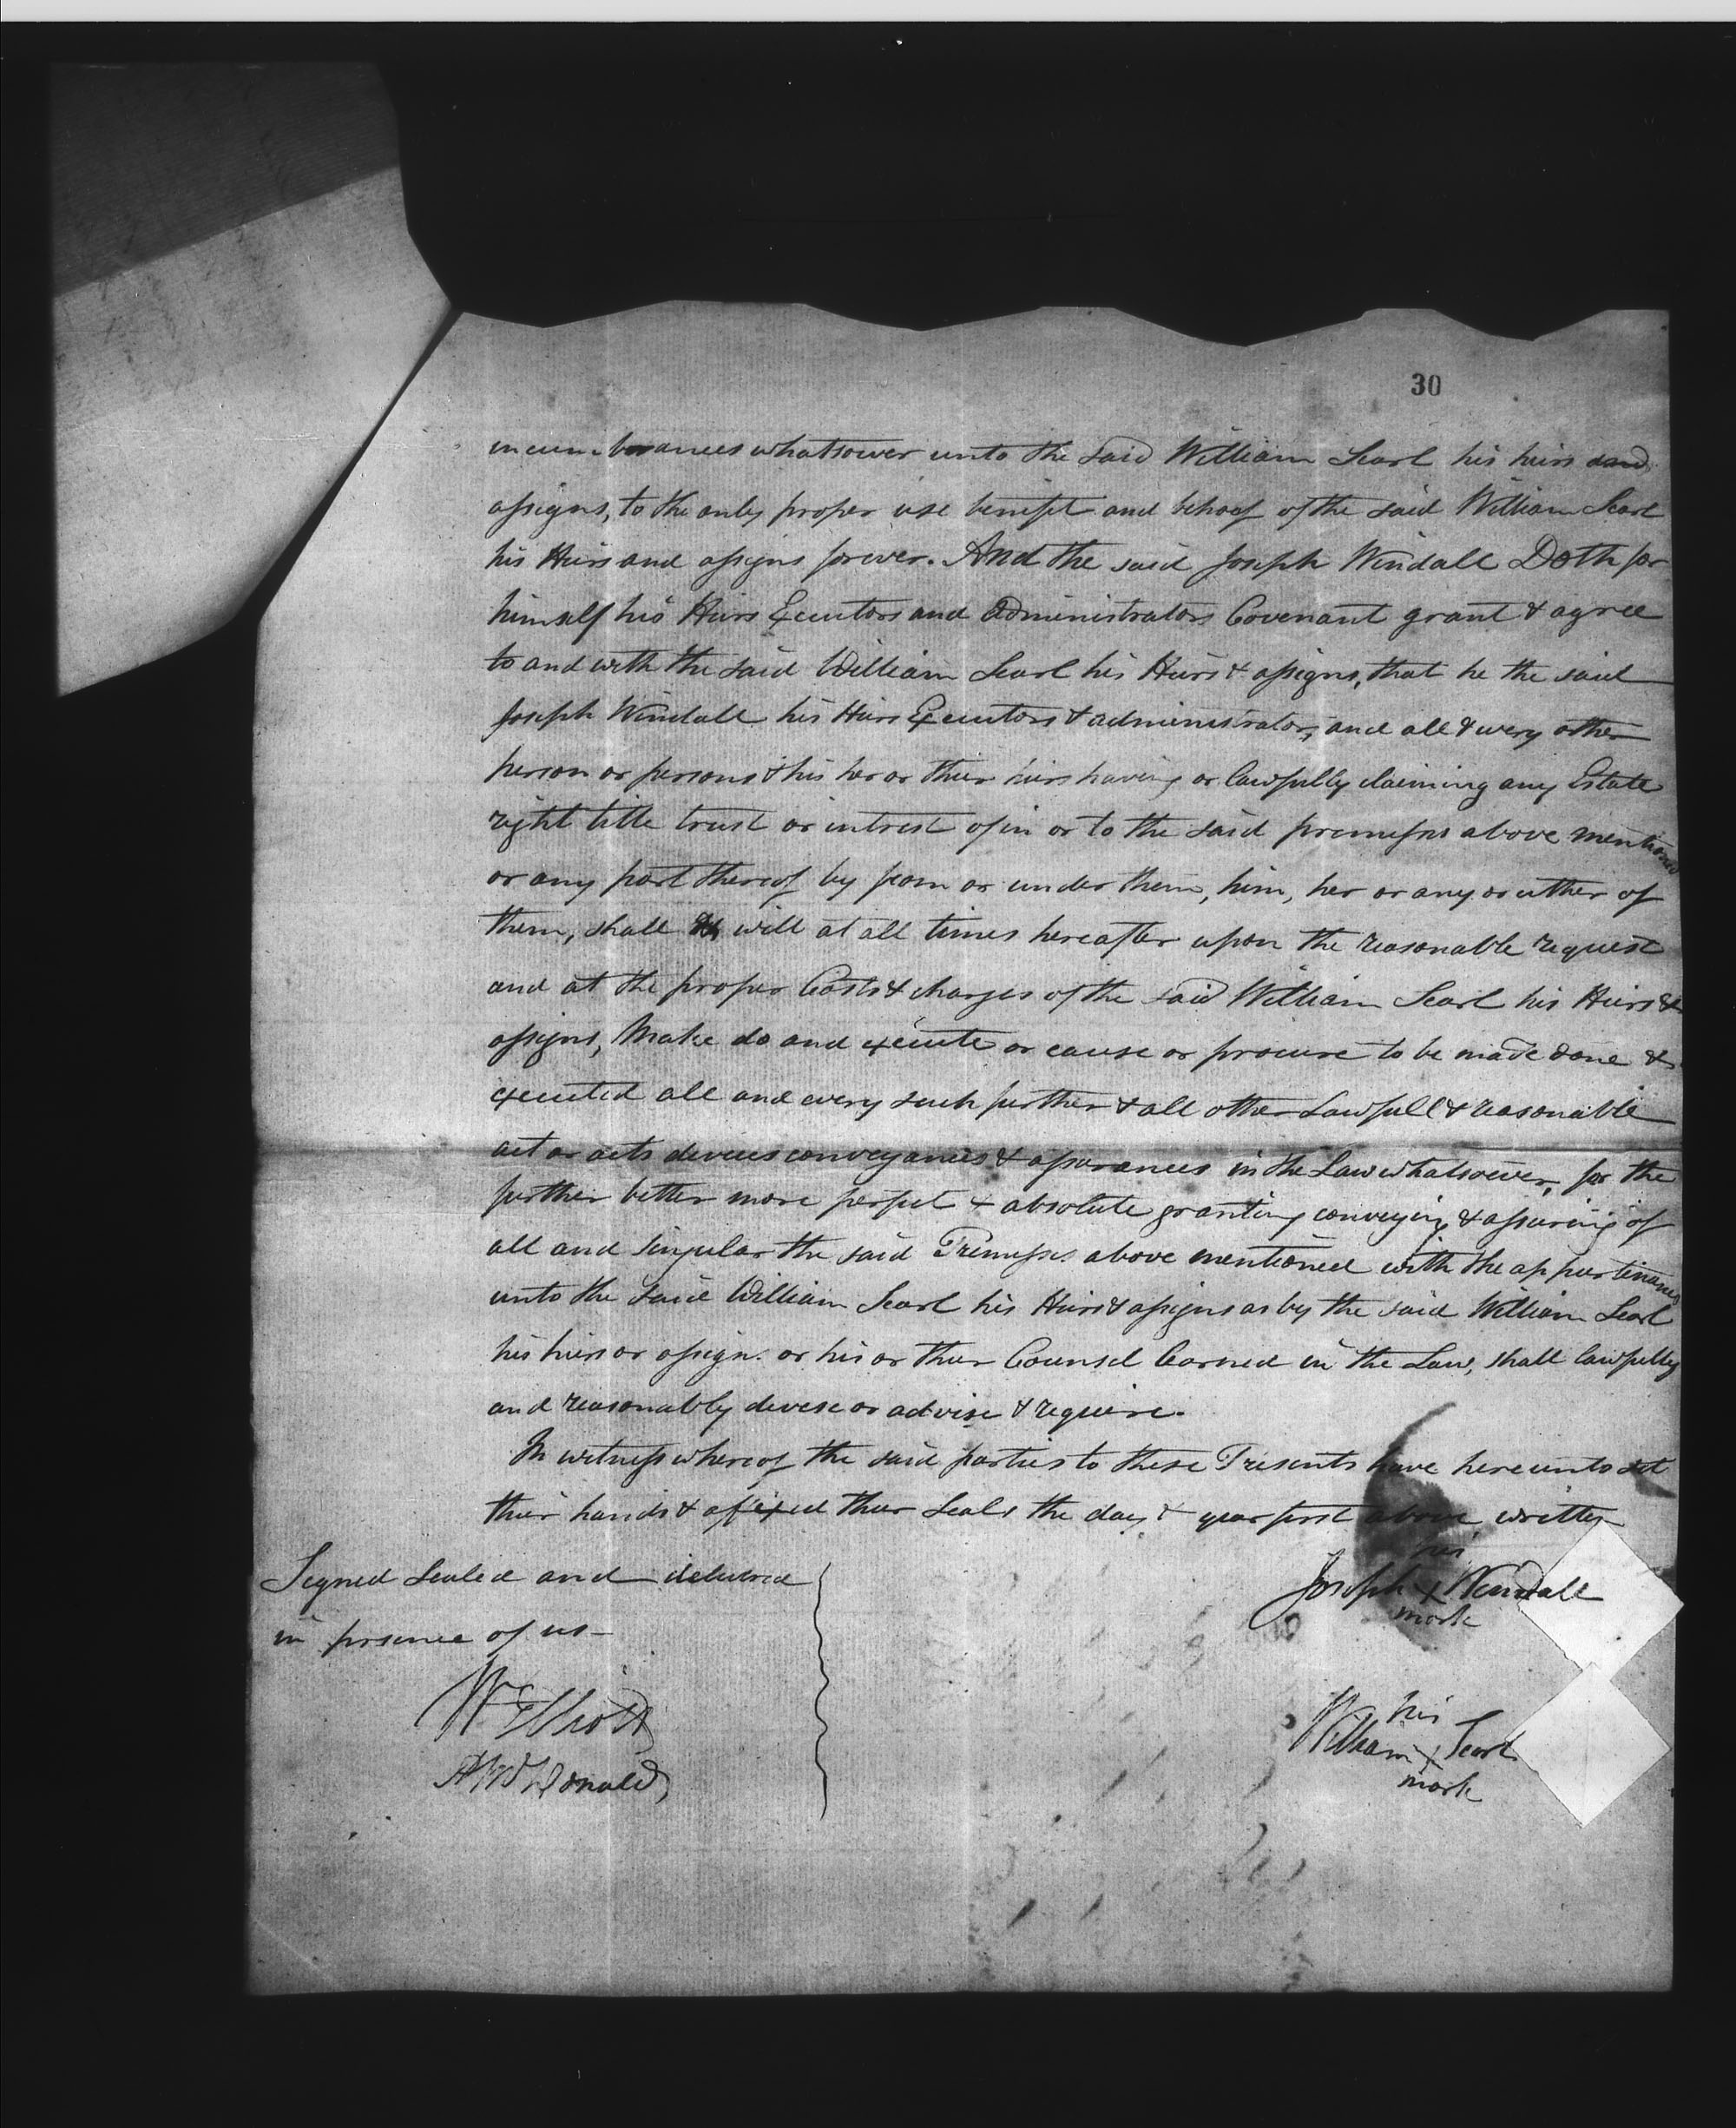 30
incumbrances whatsower unto the said William Searl his heirs and
assigns, to the only proper use benifit and behoof of the said William Searl
his Heirs and assigns forever. And the said Joseph Windall Doth for
himself his Heirs Executors and Administrators Covenant grant & agree
to and with the said William Searl his Heirs & assigns, that he the said
Joseph Windall his Heirs Executors & administrators, and all & every other
person or persons & his her or their heirs having or lawfully claiming any Estate
right title trust or intrest of in or to the said premisses above mentioned
or any part thereof by from or under them, him, her or any or either of
them, shall & will at all times hereafter upon the reasonable request
and at the proper Costs & charges of the said William Searl his Heirs &
assigns, Make do and execute or cause or procure to be made done &
executed all and every such further & all other Lawfull & reasonable
act or acts devices conveyances & assurances in the Law whatsoever, for the
further better more perfect & absolute granting conveying & assuring of
all and singular the said Premisses above mentioned with the appurtinances
unto the said William Searl his Heirs & assigns as by the said William Searl
his heirs or assigns or his or their Counsel learned in the Law, shall lawfully
and reasonably devese or advise & require.
In witness whereof the said parties to these Presents have hereunto set
their hands & affixed their Seals the day & year first above written
Signed Sealed and delivered
in presence of us
his
Joseph X Windall
mark
W Elliott
A McDonald
his
William X Searl
mark